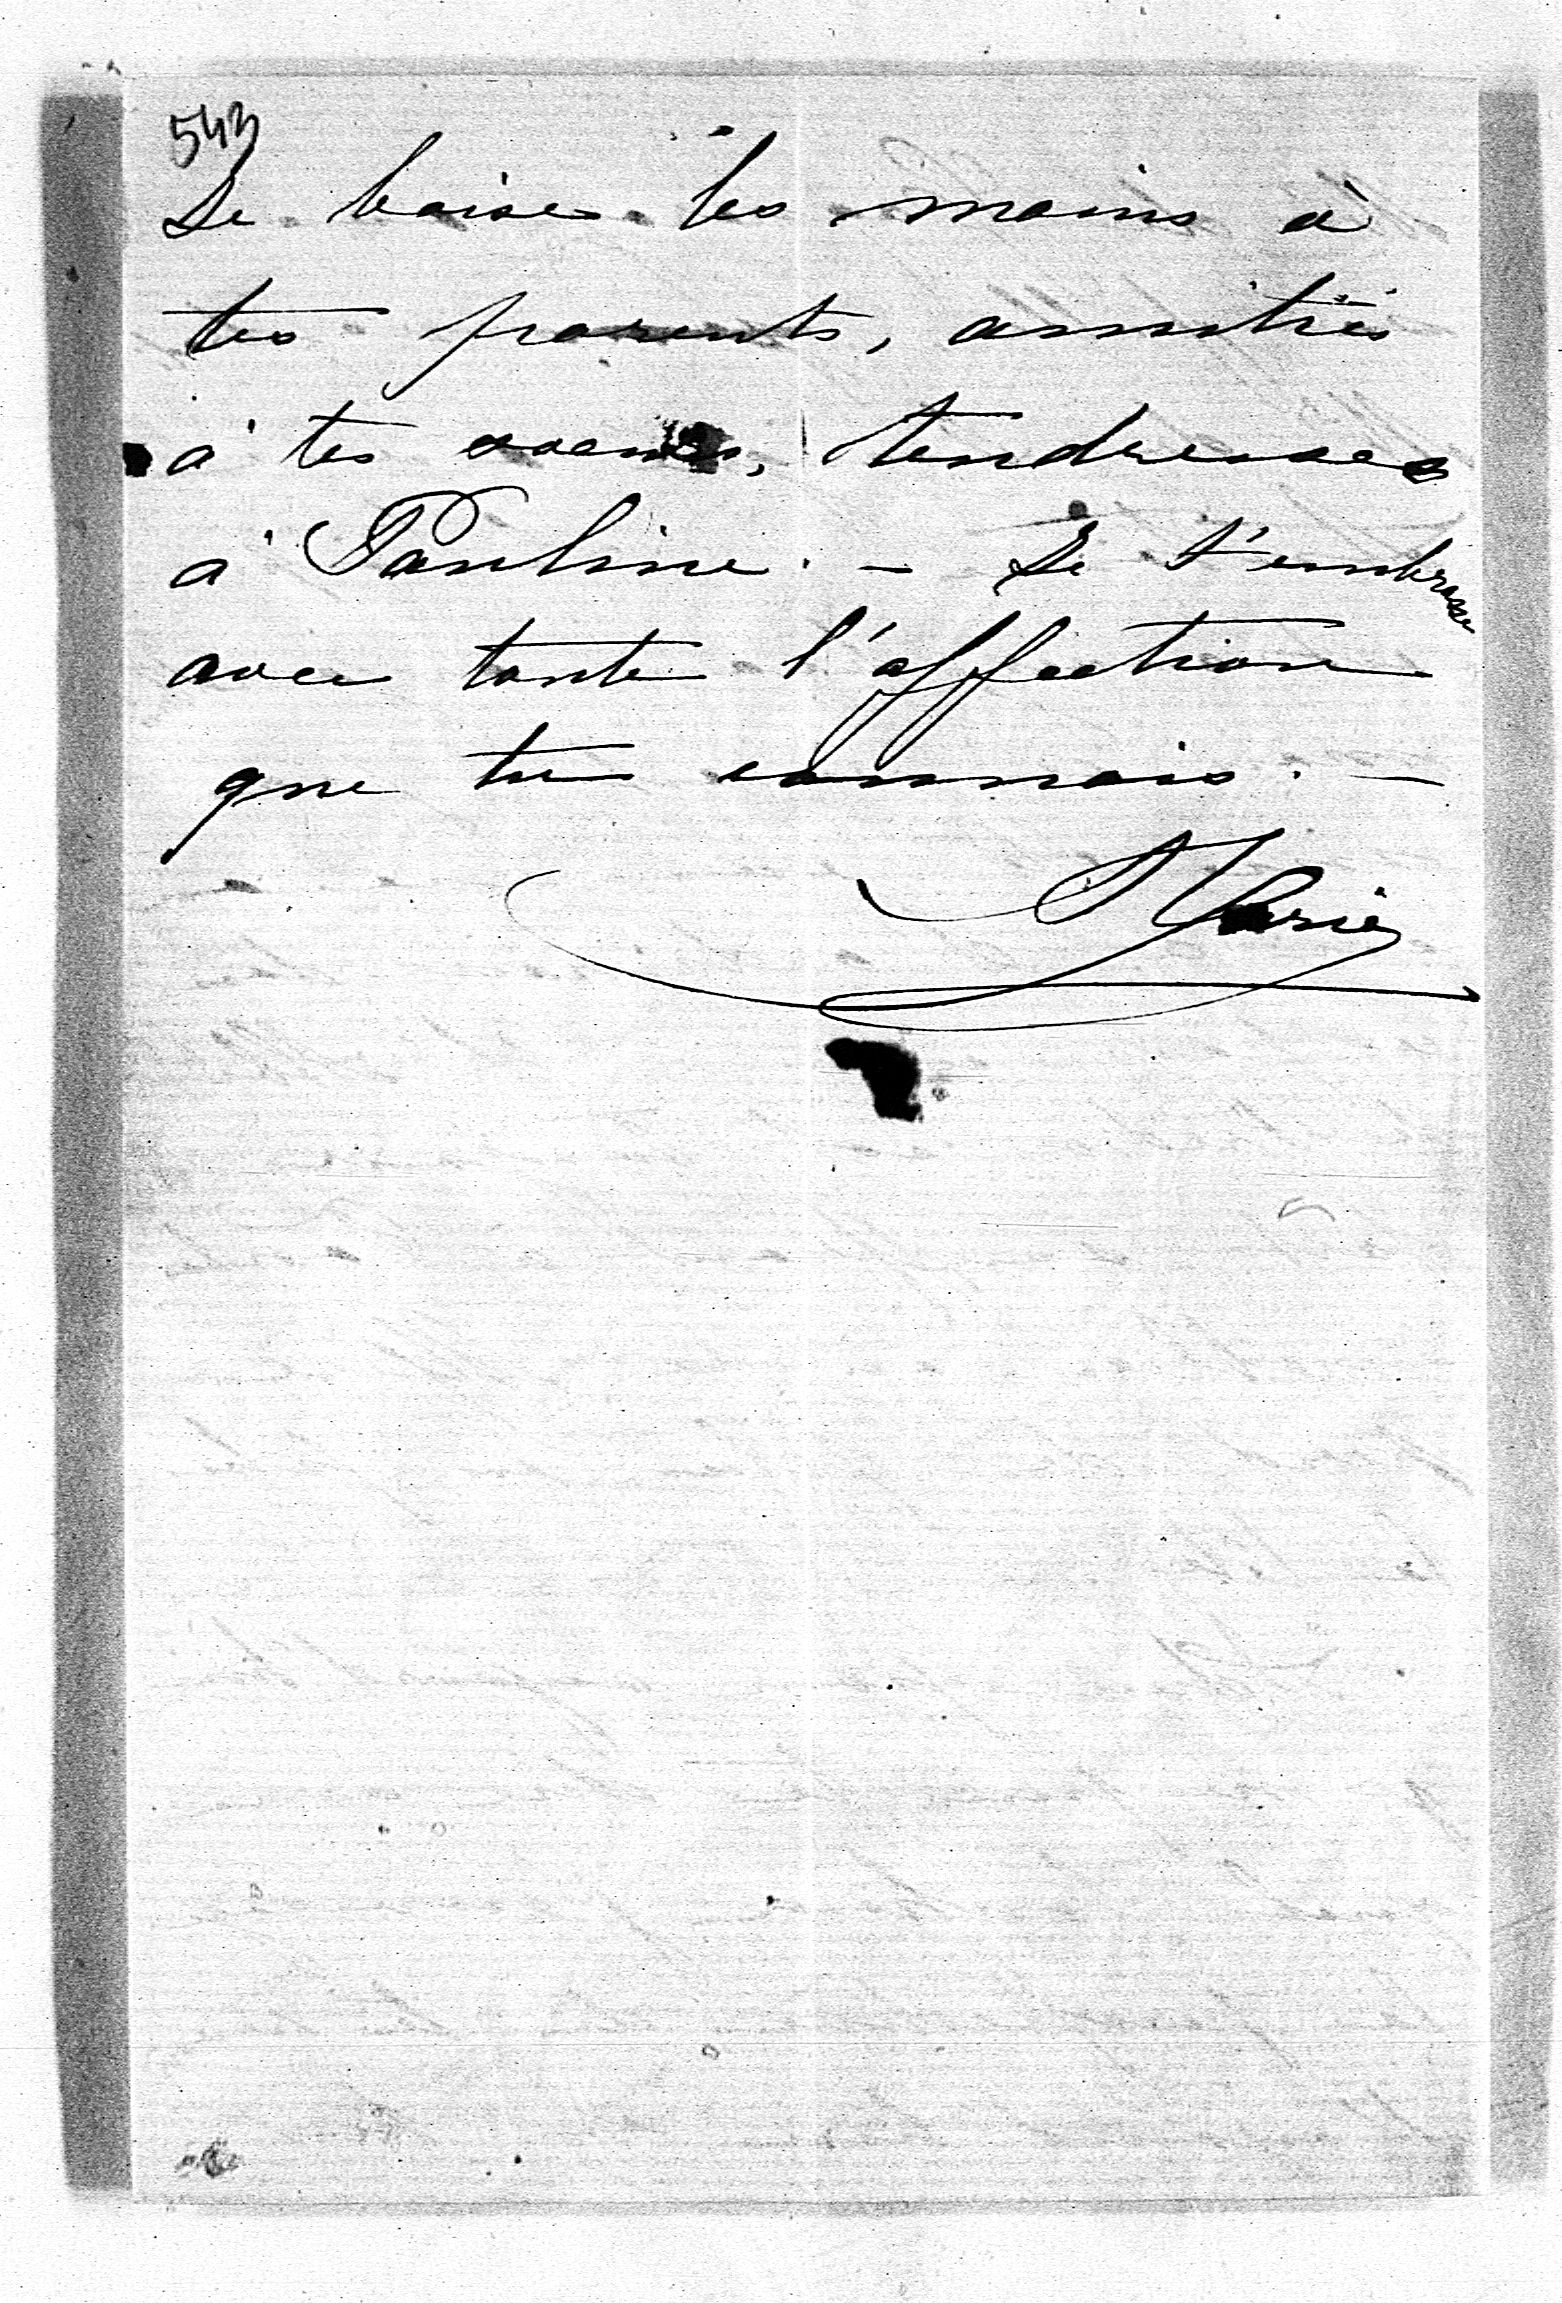 543
Je baise les mains à
tes parents, amitiés
à tes soeurs, tendresses
à Pauline. — Je t'embrasse
avec toute l'affection
que tu connais. —
Marie